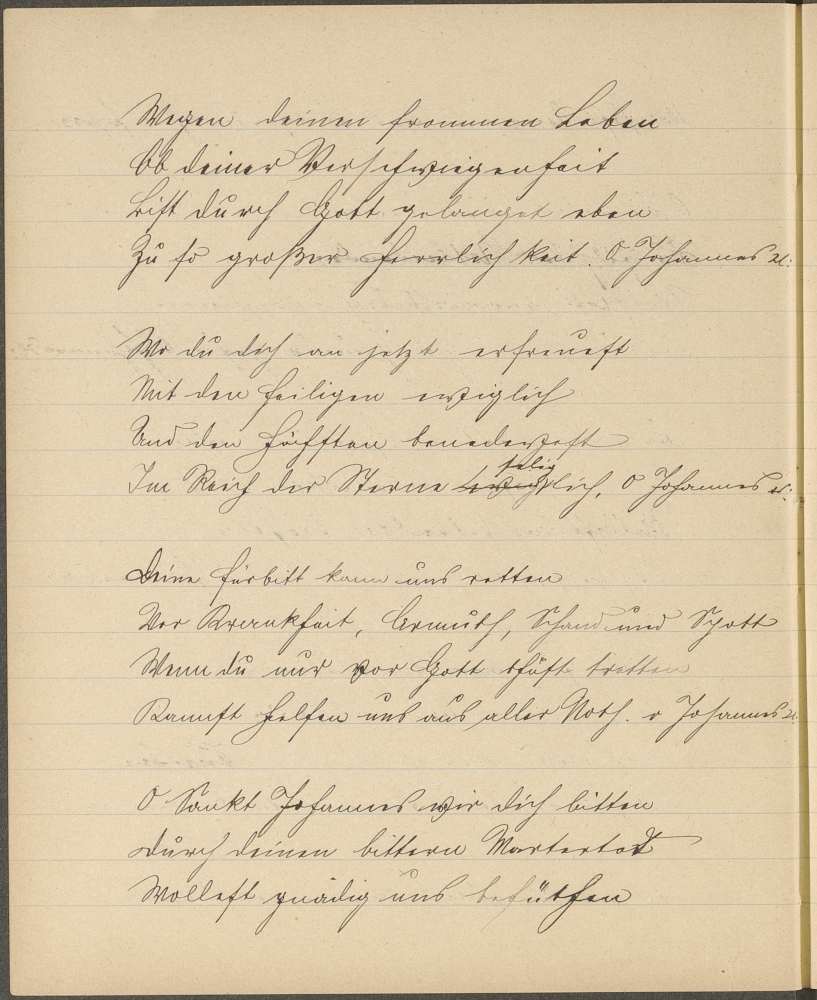 Wegen deinen frommen Leben
Ob deiner Verschwiegenheit
bist durch Gott gelanget eben
Zu so großer Herrlichkeit. O Johannes ꝛc:
Wo du dich an jetzt erfreuest
Mit den heiligen ewiglich
Und den Höchsten benedeyest
selig
Im Reich der Sterne ~~ewig~~lich, O Johannes ꝛc:
Deine fürbitt kann uns retten
Vor Krankheit, Armuth, Schand und Spott
Wenn du nur vor Gott thust tretten
Kannst helfen uns aus aller Noth. o Johannes ꝛc.
O Sankt Johannes wir dich bitten
durch deinen bittern Martertod
Wollest gnädig uns behüthen